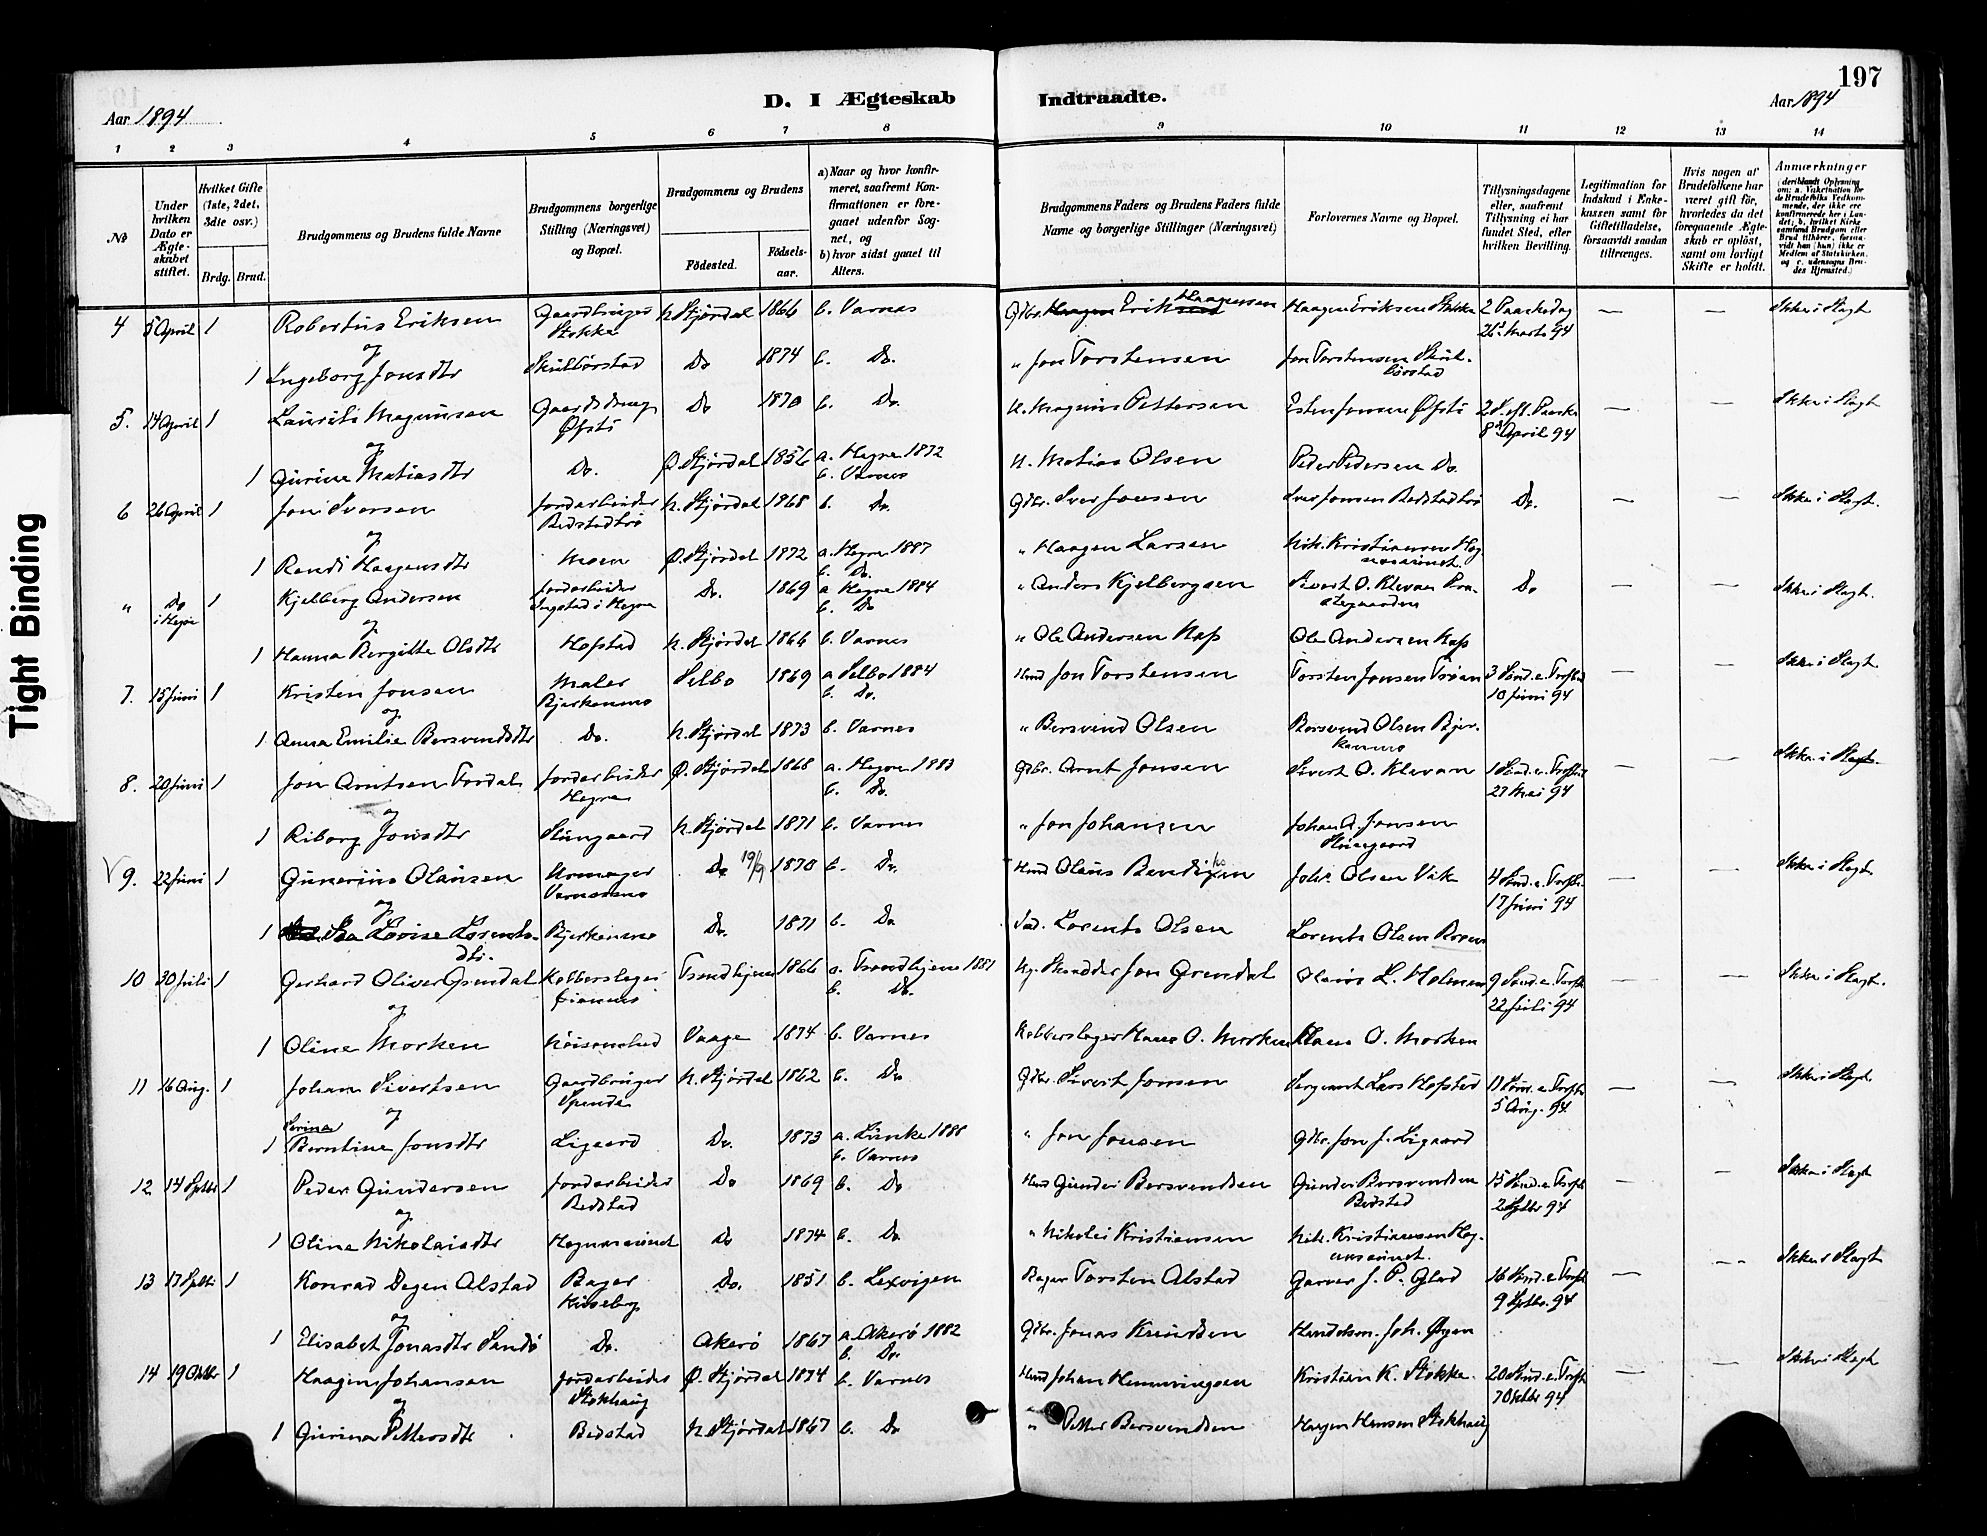 197
D. I Ægteskab Indtraadte.
Aar 1894
Aar 1894
1 2 3 4 5 6 7 8 9 10 11 12 13 14
№
Under hvilken Dato er Ægteskabet stiftet.
Hvilket Gifte (1ste, 2det, 3die osv.)
Brdg. Brud.
Brudgommens og Brudens fulde Navne
Brudgommens borgerlige Stilling (Næringsvei) og Bopæl.
Brudgommens og Brudens
Fødested. Fødselsaar.
a) Naar og hvor konfirmeret, saafremt Konfirmationen er foregaaet udenfor Sognet, og
b) hvor sidst gaaet til Alters.
Brudgommens Faders og Brudens Faders fulde Navne og borgerlige Stillinger (Næringsvei)
Forlovernes Navne og Bopæl.
Tillysningsdagene eller, saafremt Tillysning ei har fundet Sted, efter hvilken Bevilling.
Legitimation for Indskud i Enkekassen samt for Giftetilladelse, forsaavidt saadan tiltrænges.
Hvis nogen af Brudefolkene har været gift før, hvorledes da det foregaaende Ægteskab er opløst, samt om lovligt Skifte er holdt.
Anmærkninger
(deriblandt Oplysning om: a. Vakcination for de Brudefolks Vedkommende, der ikke ere konfirmerede her i Landet; b. hvilket Kirkesamfund Brudgom eller Brud tilhører, forsaavidt han (hun) ikke er Medlem af Statskirken, og c. udensogns Brudes Hjemsted.)
4 5 April 1 Robertus Eriksen Gaardbruger Stokke N. Stjørdal 1866 b. Varnes Gdbr. Erik Haagensen Haagen Eriksen Stokke 2 Paaskedag 26de Marts 94 — — Ikke i Slægt
og
1 Ingeborg Jonsdtr Skulbørstad Do 1874 b. Do. " Jon Torstensen Jon Torstensen Skulbørstad
5. 14 April 1 Laurits Magnusen Gaardsdreng Øfsti Do 1870 b. Do. N. Magnus Pettersen Esten Jonsen Øfsti 2 S. eft. Paaske 8de April 94 — — Ikke i Slægt
og
1 Gurine Matiasdtr Do. Ø. Stjørdal 1856 a. Hegre 1872 b. Varnes N. Matias Olsen Peder Pedersen Do.
6 26 April 1 Jon Iversen Jordarbeider Bedstadbrø N. Stjørdal 1868 b. Do. Gdbr. Iver Jonsen Iver Jonsen Do. — — Ikke i Slægt.
og
1 Randi Haagensdtr Moen Ø. Stjørdal 1872 a. Hegre 1887 b. Do. " Haagen Larsen Nik. Kristiansen
" Do i Hegre 1 Kjelberg Andersen Jordarbeider Ingstad i Hegre Do. 1869 a Hegre 1884 b. Do " Anders Kjelbergsen Sivert O. Klevan Præstegaarden Do — — Ikke i Slægt.
og
1 Hanna Bergitte Olsdtr Hofstad N. Stjørdal 1866 b. Varnes " Ole Andersen Ole Andersen
7. 15 Juni 1 Kristen Jonsen Maler Bjerkenmo Selbo 1869 a Selbo 1884 b. Do. Hmd Jon Torstensen Torsten Jonsen 3 Sønd. e. Trefold 10 Juni 94 — — Ikke i Slægt.
og
1 Anna Emilie Bersvendsdtr Do. N. Stjørdal 1873 b. Varnes " Bersvend Olsen Bersvend Olsen Bjerkenmo
8. 20 Juni 1 Jon Arntsen Fordal Jordarbeider Hegre Ø. Stjørdal 1868 a. Hegre 1883 b. Do. Gdbr. Arnt Jonsen Sivert O. Klevan 1 Sønd. e. Trefold 27 Mai 94 — — Ikke i Slægt.
og
1 Riborg Jonsdtr N. Stjørdal 1871 b. Varnes " Jon Johansen Johan A. Jonsen
9. 22 Juni 1 Gunerius Olausen Urmager Varnesmo Do 19/9 1870 b. Do. Hmd Olaus Johs Olsen Vik 4 Sønd. e. Trefold 17 Juni 94 — — Ikke i Slægt
og
1 Lovise Lorentsdtr. Bjerkenmo Do. 1871 b. Do Lorents Olsen Lorents Olsen
10 30 Juli 1 Gerhard Oliver Grendal Kobberslager Trondhjem 1866 a. Trondhjem 1881 b. Do. Skrædder Jon Grendal Olaus L. Holmen 9 Sønd. e. Trefold 22 Juli 94 — — Ikke i Slægt.
og
1 Oline Morken Vaage 1874 b. Varnes Kobberslager Hans O. Morken Hans O. Morken
11 16 Aug. 1 Johan Sivertsen Gaardbruger N. Stjørdal 1862 b. Do Gdbr. Sivert Jonsen Sergeant Lars Hofstad 11 Sønd. e. Trefold 5 Aug. 94 — — Ikke i Slægt
og
1 Serina Berntine Jonsdtr Ligaard Do. 1873 a. Lånke 1888 b. Varnes " Jon Jonsen Gdbr. Jon J. Ligaard
12 14 Septbr 1 Peder Gundersen Jordarbeider Bedstad Do 1869 b. Do Hmd Gunder Bersvendsen Gunder Bersvendsen Bedstad 15 Sønd. e. Trefold 2 Septbr 94 — — Ikke i Slægt
og
1 Oline Nikolaisdtr Do 1874 b. Do " Nikolai Kristiansen Nik. Kristiansen
13 17 Septbr 1 Konrad Degen Alstad Bager Do. 1851 b. Lexvigen Bager Torsten Alstad Garver J. P. Glad 16 Sønd. e. Trefold 9 Septbr. 94 — — Ikke i Slægt
og
1 Elisabet Jonasdtr Sandø Do. Akerø 1867 a. Akerø 1882 b. Do Gdbr. Jonas Knudsen Handelsm. Joh. Øyen
14 19 Oktbr 1 Haagen Johansen Jordarbeider Stokhaug Ø. Stjørdal 1874 b. Varnes Hmd Johan Henningsen Kristian K. Stokke. 20 Sønd. e. Trefold 7 Oktbr 94 — — Ikke i Slægt
og
1 Gurina Pettersdtr Bedstad N. Stjørdal 1867 b. Do " Petter Bersvendsen Stokhaug
Tight Binding